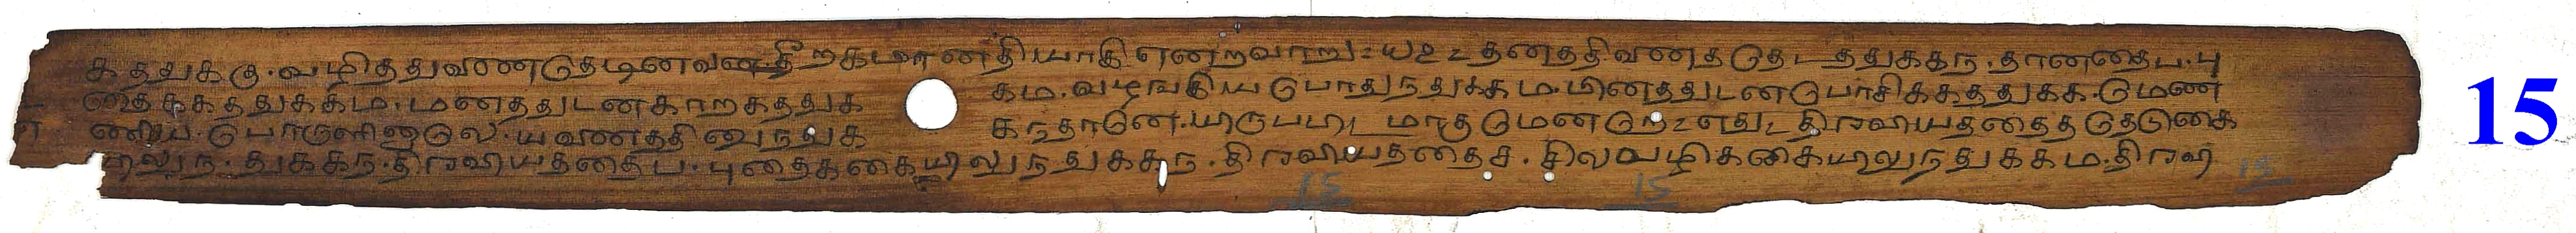 கத்துக்கு. வழித்துவண்டுதடினவன் தீறகமானதியாகி என்றவாறு: ய௨: தனத்தி வணத தேடத்துக்கந. தானதைப. பு
தைக்கத்துக்கம. மனத்துடன்காறகத்துக கம. வழங்கிய பொதுந துக்கம. மினத்துடன்பொசிக்கத்துக்க. மெண
ணிய. பொருளினுலெ. யவணத்தினுநதுக கந்தானே. யிருபபிடமாகு மென்றே: எது: திரவியத்தைத தேடுகை
யிலுந. துக்கந. திரவியத்தைப. புதைக்கையிலுநதுக்கந. திரவியத்தைச. சிலவழிக்கையிலுநதுக்கம. திரவி
15
15
15
15